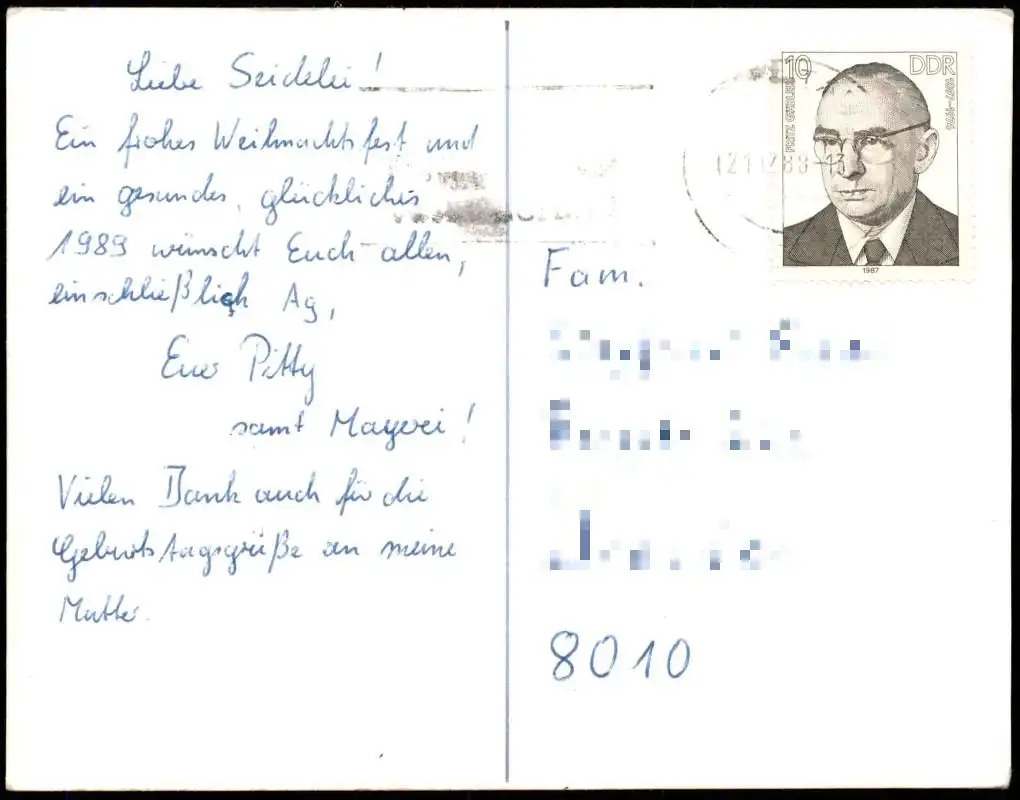 Liebe Seidelei!
Ein frohes Weihnachtsfest und
ein gesundes, glückliches
1989 wünscht Euch allen,
einschließlich Ag,
Euer Pitty
samt Mayerei!
Vielen Dank auch für die
Geburtstagsgrüße an meine
Mutter.
10 DDR
FRITZ GÄBLER
1897-1974
1987
Fam.
8010